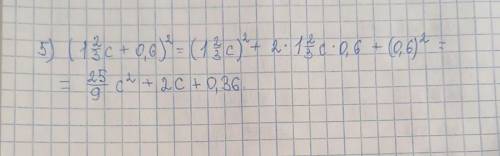 5) (1 2/3 c + 0,6)² = (1 2/3 c)² + 2 · 1 2/3 c · 0,6 + (0,6)² =
= 25/9 c² + 2c + 0,36